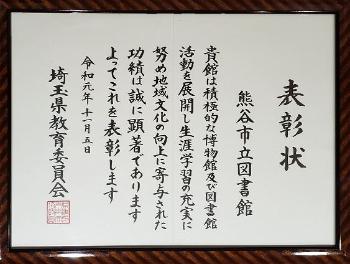 表彰状
熊谷市立図書館
貴館は積極的な博物館及び図書館
活動を展開し生涯学習の充実に
努め地域文化の向上に寄与された
功績は誠に顕著であります
よってこれを表彰します
令和元年十一月五日
埼玉県教育委員会